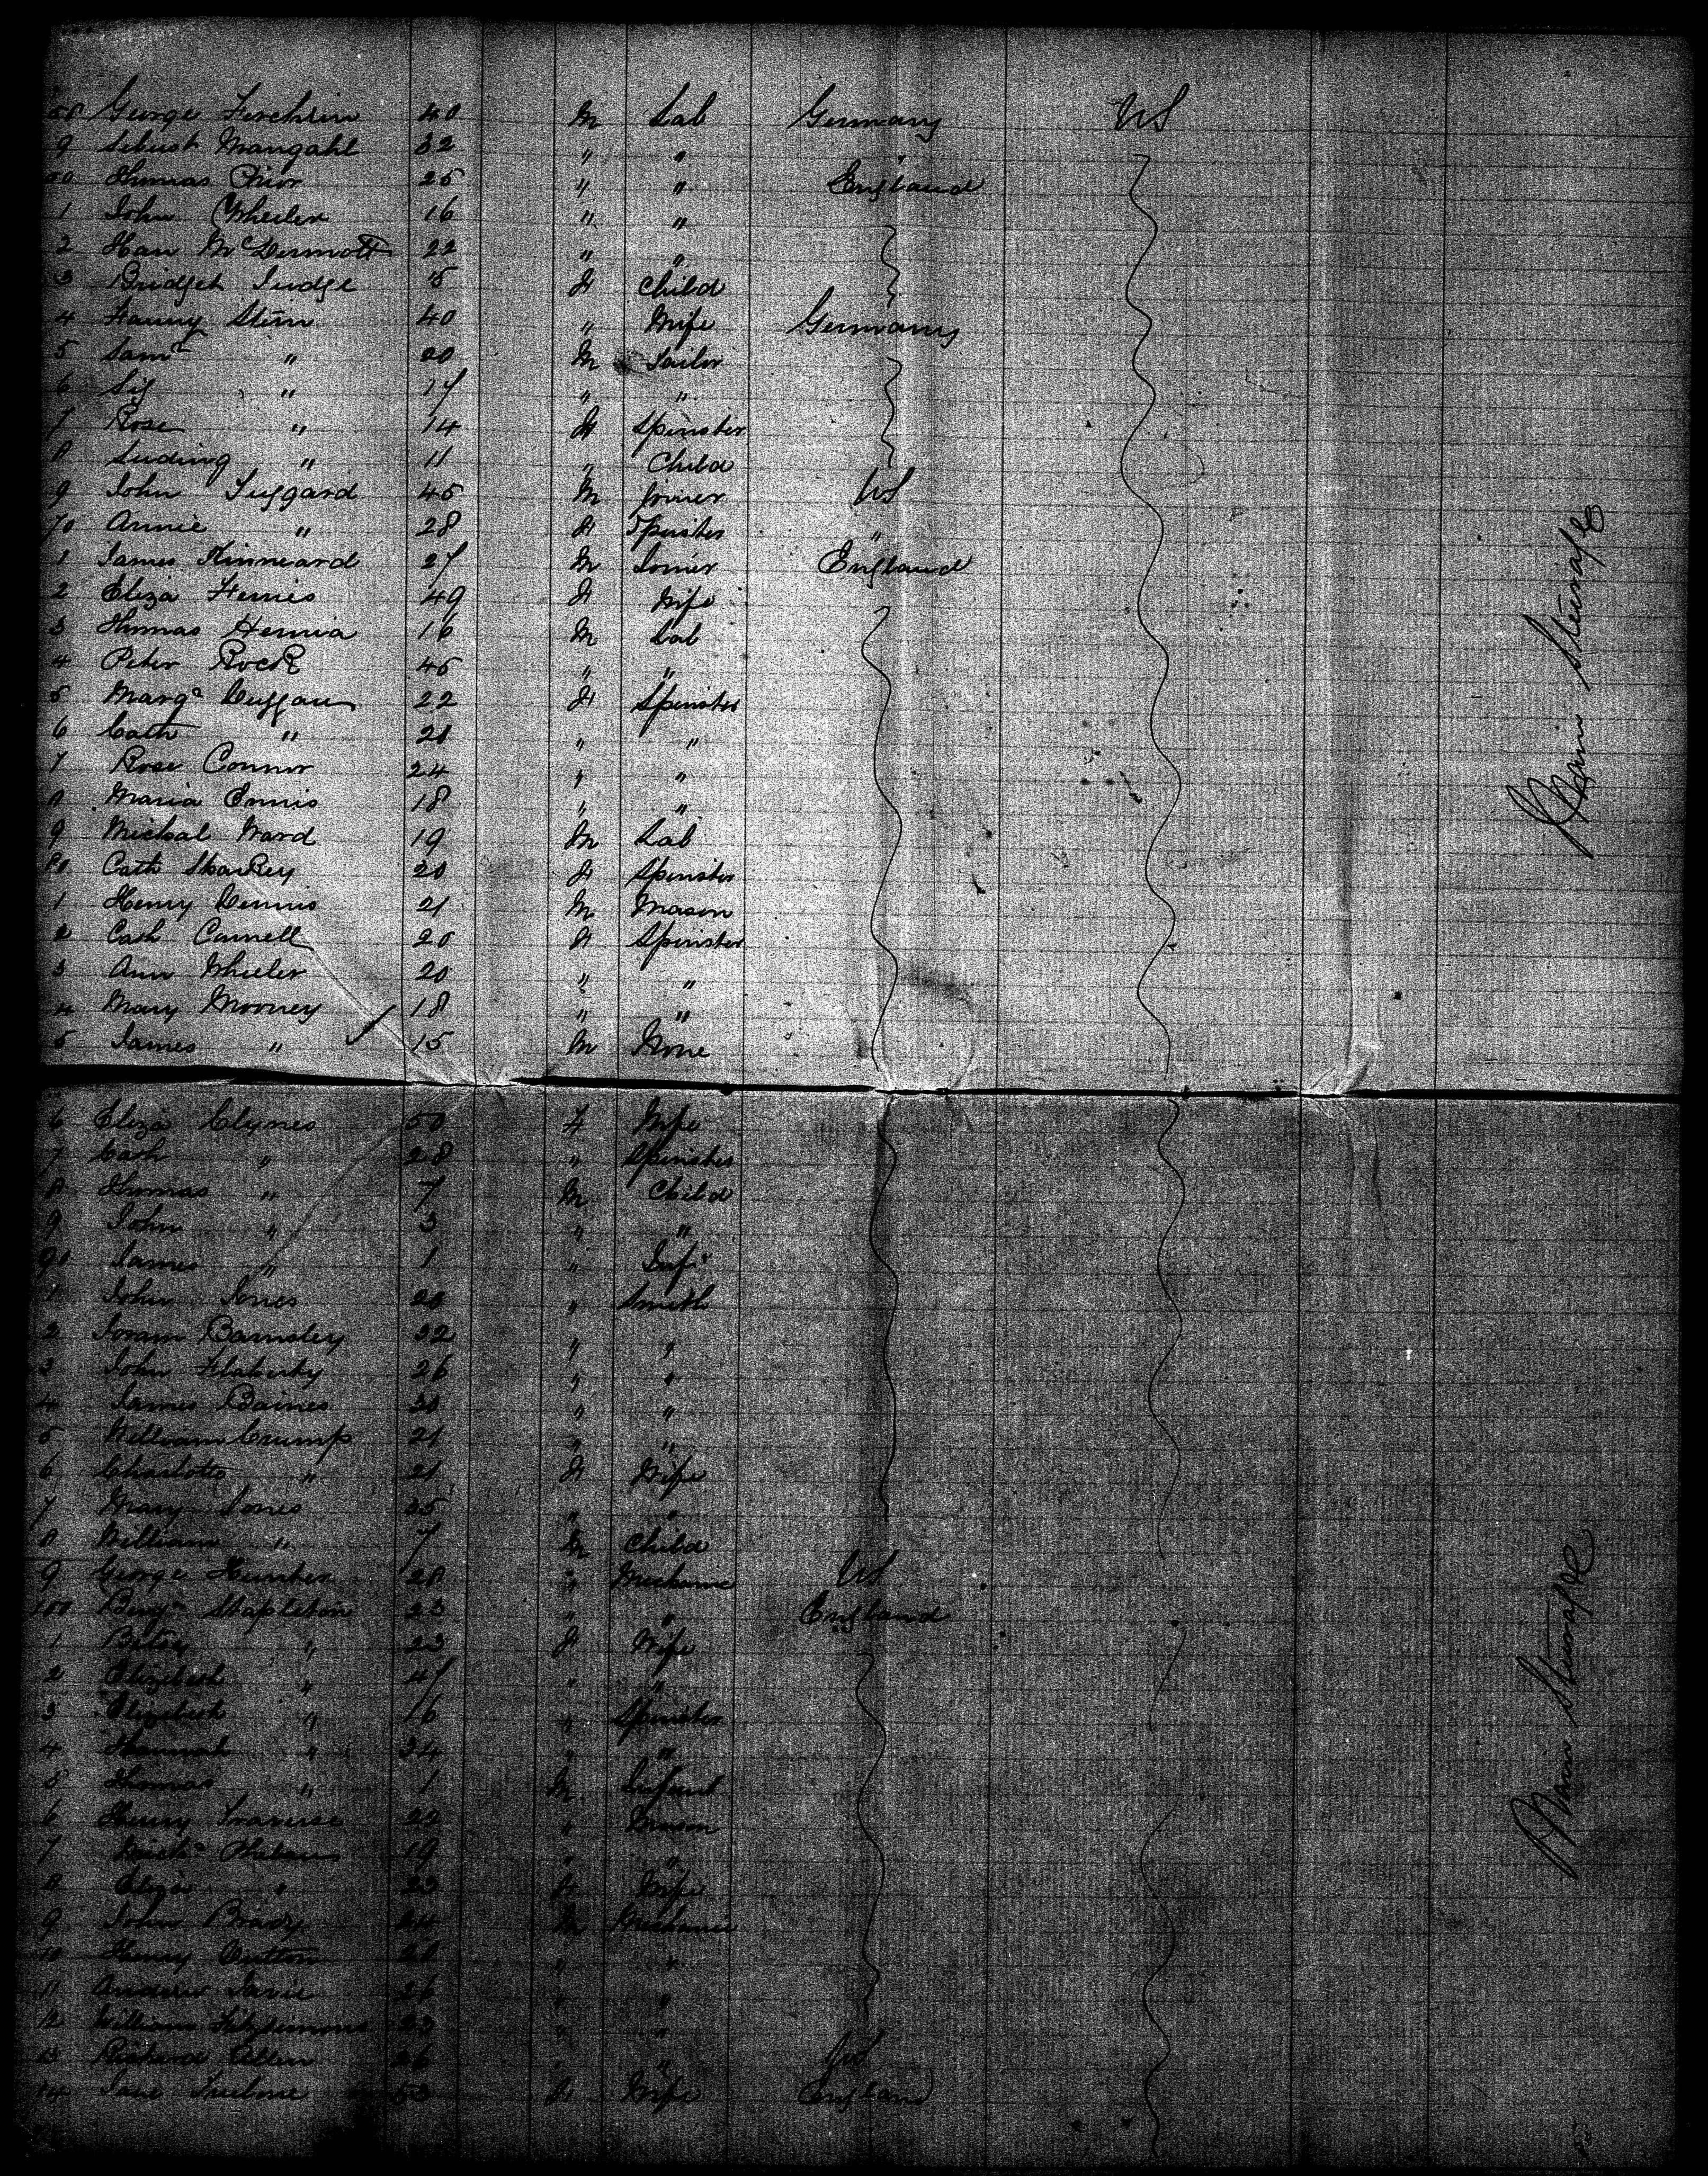 58 George Ferchlein 40 M Lab Germany US
9 Sebust Mangahl 32 " "
60 Thomas Prior 25 " " England
1 John Wheeler 16 " "
2 Han McDermott 22 " "
3 Bridget Judge 5 F Child
4 Fanny Stein 40 " Wife Germany
5 Saml " 20 M Tailor
6 Sig " 17 " "
7 Rose " 14 F Spinster
8 Luding " 11 " Child
9 John Tuggard 45 M Joiner US
70 Annie " 28 F Spinster "
1 James Kinneard 27 M Joiner England
2 Eliza Ferries 49 F Wife
3 Thomas 16 M Lab
4 Peter Rock 45 " "
5 Marga Duggan 22 F Spinster
6 Cath " 21 " "
7 Rose Connor 24 " "
8 Maria Ennis 18 " "
9 Micheal Ward 19 M Lab
80 Cath Sharkey 20 F Spinster
1 Henry Dennis 21 M Mason
2 Cath Connell 20 F Spinster
3 Ann Wheeler 20 " "
4 Mary Mooney 18 " "
5 James " 15 M None
6 Eliza Clynes 50 F Wife
7 Cath " 28 " Spinster
8 Thomas " 7 M Child
9 John " 3 " "
90 James " 1 " Inft
1 John Jones 20 " Smith
2 Joram Barnsley 32 " "
3 John Flaherty 26 " "
4 James Baines 30 " "
5 William Crump 21 " "
6 Charlotte " 21 F Wife
7 Mary Jones 35 " "
8 William " 7 M Child
9 George Hunter 28 " Mechanic US
100 Benjn Stapleton 23 " " England
1 Betsy " 23 F Wife
2 Elizabeth " 47 " "
3 Elizabeth " 16 " Spinster
4 Hannah " 34 " "
5 Thomas " 1 M Infant
6 Henry Traverse 22 " Mason
7 19 " "
8 Eliza " 23 F Wife
9 John Brady 24 M Mechanic
10 Henry Button " "
11 Andrew 26 " "
12 William Fitzsimons 23 " "
13 Richard Allen 26 " "
14 Jane F Wife England
Main Steerage
Main Steerage